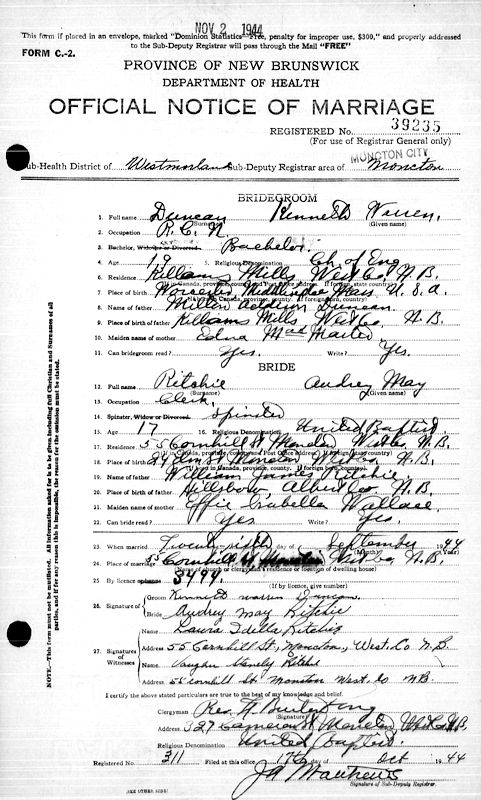 NOV 2 1944
This form if placed in an envelope, marked "Dominion Statistics—Free, penalty for improper use, $300," and properly addressed
to the Sub-Deputy Registrar will pass through the Mail "FREE"
FORM C.-2.
PROVINCE OF NEW BRUNSWICK
DEPARTMENT OF HEALTH
OFFICIAL NOTICE OF MARRIAGE
REGISTERED No. 39235
(For use of Registrar General only)
MONCTON CITY
Sub-Health District of Westmorland Sub-Deputy Registrar area of Moncton
BRIDEGROOM
1. Full name Duncan Kenneth Warren
(Surname) (Given name)
2. Occupation R.C.N.
3. Bachelor, Widower or Divorced. Bachelor
4. Age 19 5. Religious Denomination Ch. of Eng
6. Residence Killams Mills West Co. N.B.
7. Place of birth Worcester Mass U.S.A.
8. Name of father Duncan
9. Place of birth of father Killams Mills West Co. N.B.
10. Maiden name of mother Edna
11. Can bridegroom read? Yes. Write? Yes.
BRIDE
12. Full name Ritchie Audrey May
(Surname) (Given name)
13. Occupation Clerk
14. Spinster, Widow or Divorced. Spinster
15. Age 17 16. Religious Denomination United Baptist
17. Residence 55 Cornhill St Moncton West Co N.B.
18. Place of birth St Moncton West Co N.B.
19. Name of father William James Ritchie
20. Place of birth of father Hillsboro, Albert Co. N.B.
21. Maiden name of mother Effie Isabella Wallace
22. Can bride read? Yes Write? Yes.
23. When married Twenty day of September 1944
(Month) (Year)
24. Place of marriage 55 Cornhill St Moncton West Co. N.B.
(Name of church or clergyman's residence or location of dwelling house)
25. By licence 3494.
(If by licence, give number)
26. Signature of
Groom Kenneth Warren Duncan.
Bride Audrey May Ritchie
27. Signatures of Witnesses
Name Laura Idella Ritchie
Address 55 Cornhill St, Moncton, West. Co N.B.
Name Vaughn Ritchie
Address 55 Cornhill St Moncton West. Co NB.
I certify the above stated particulars are true to the best of my knowledge and belief.
Clergyman Rev.
(Signature)
Address 327 Cameron St Moncton West Co N.B.
Religious Denomination United Baptist.
Registered No. 311 Filed at this office 17th Oct 1944
Signature of Sub-Deputy Registrar.
(SEE OTHER SIDE)
NOTE—This form must not be mutilated. All information asked for is to be given including full Christian and Surnames of all
parties, and if for any reason this is impossible, the reason for the omission must be stated.